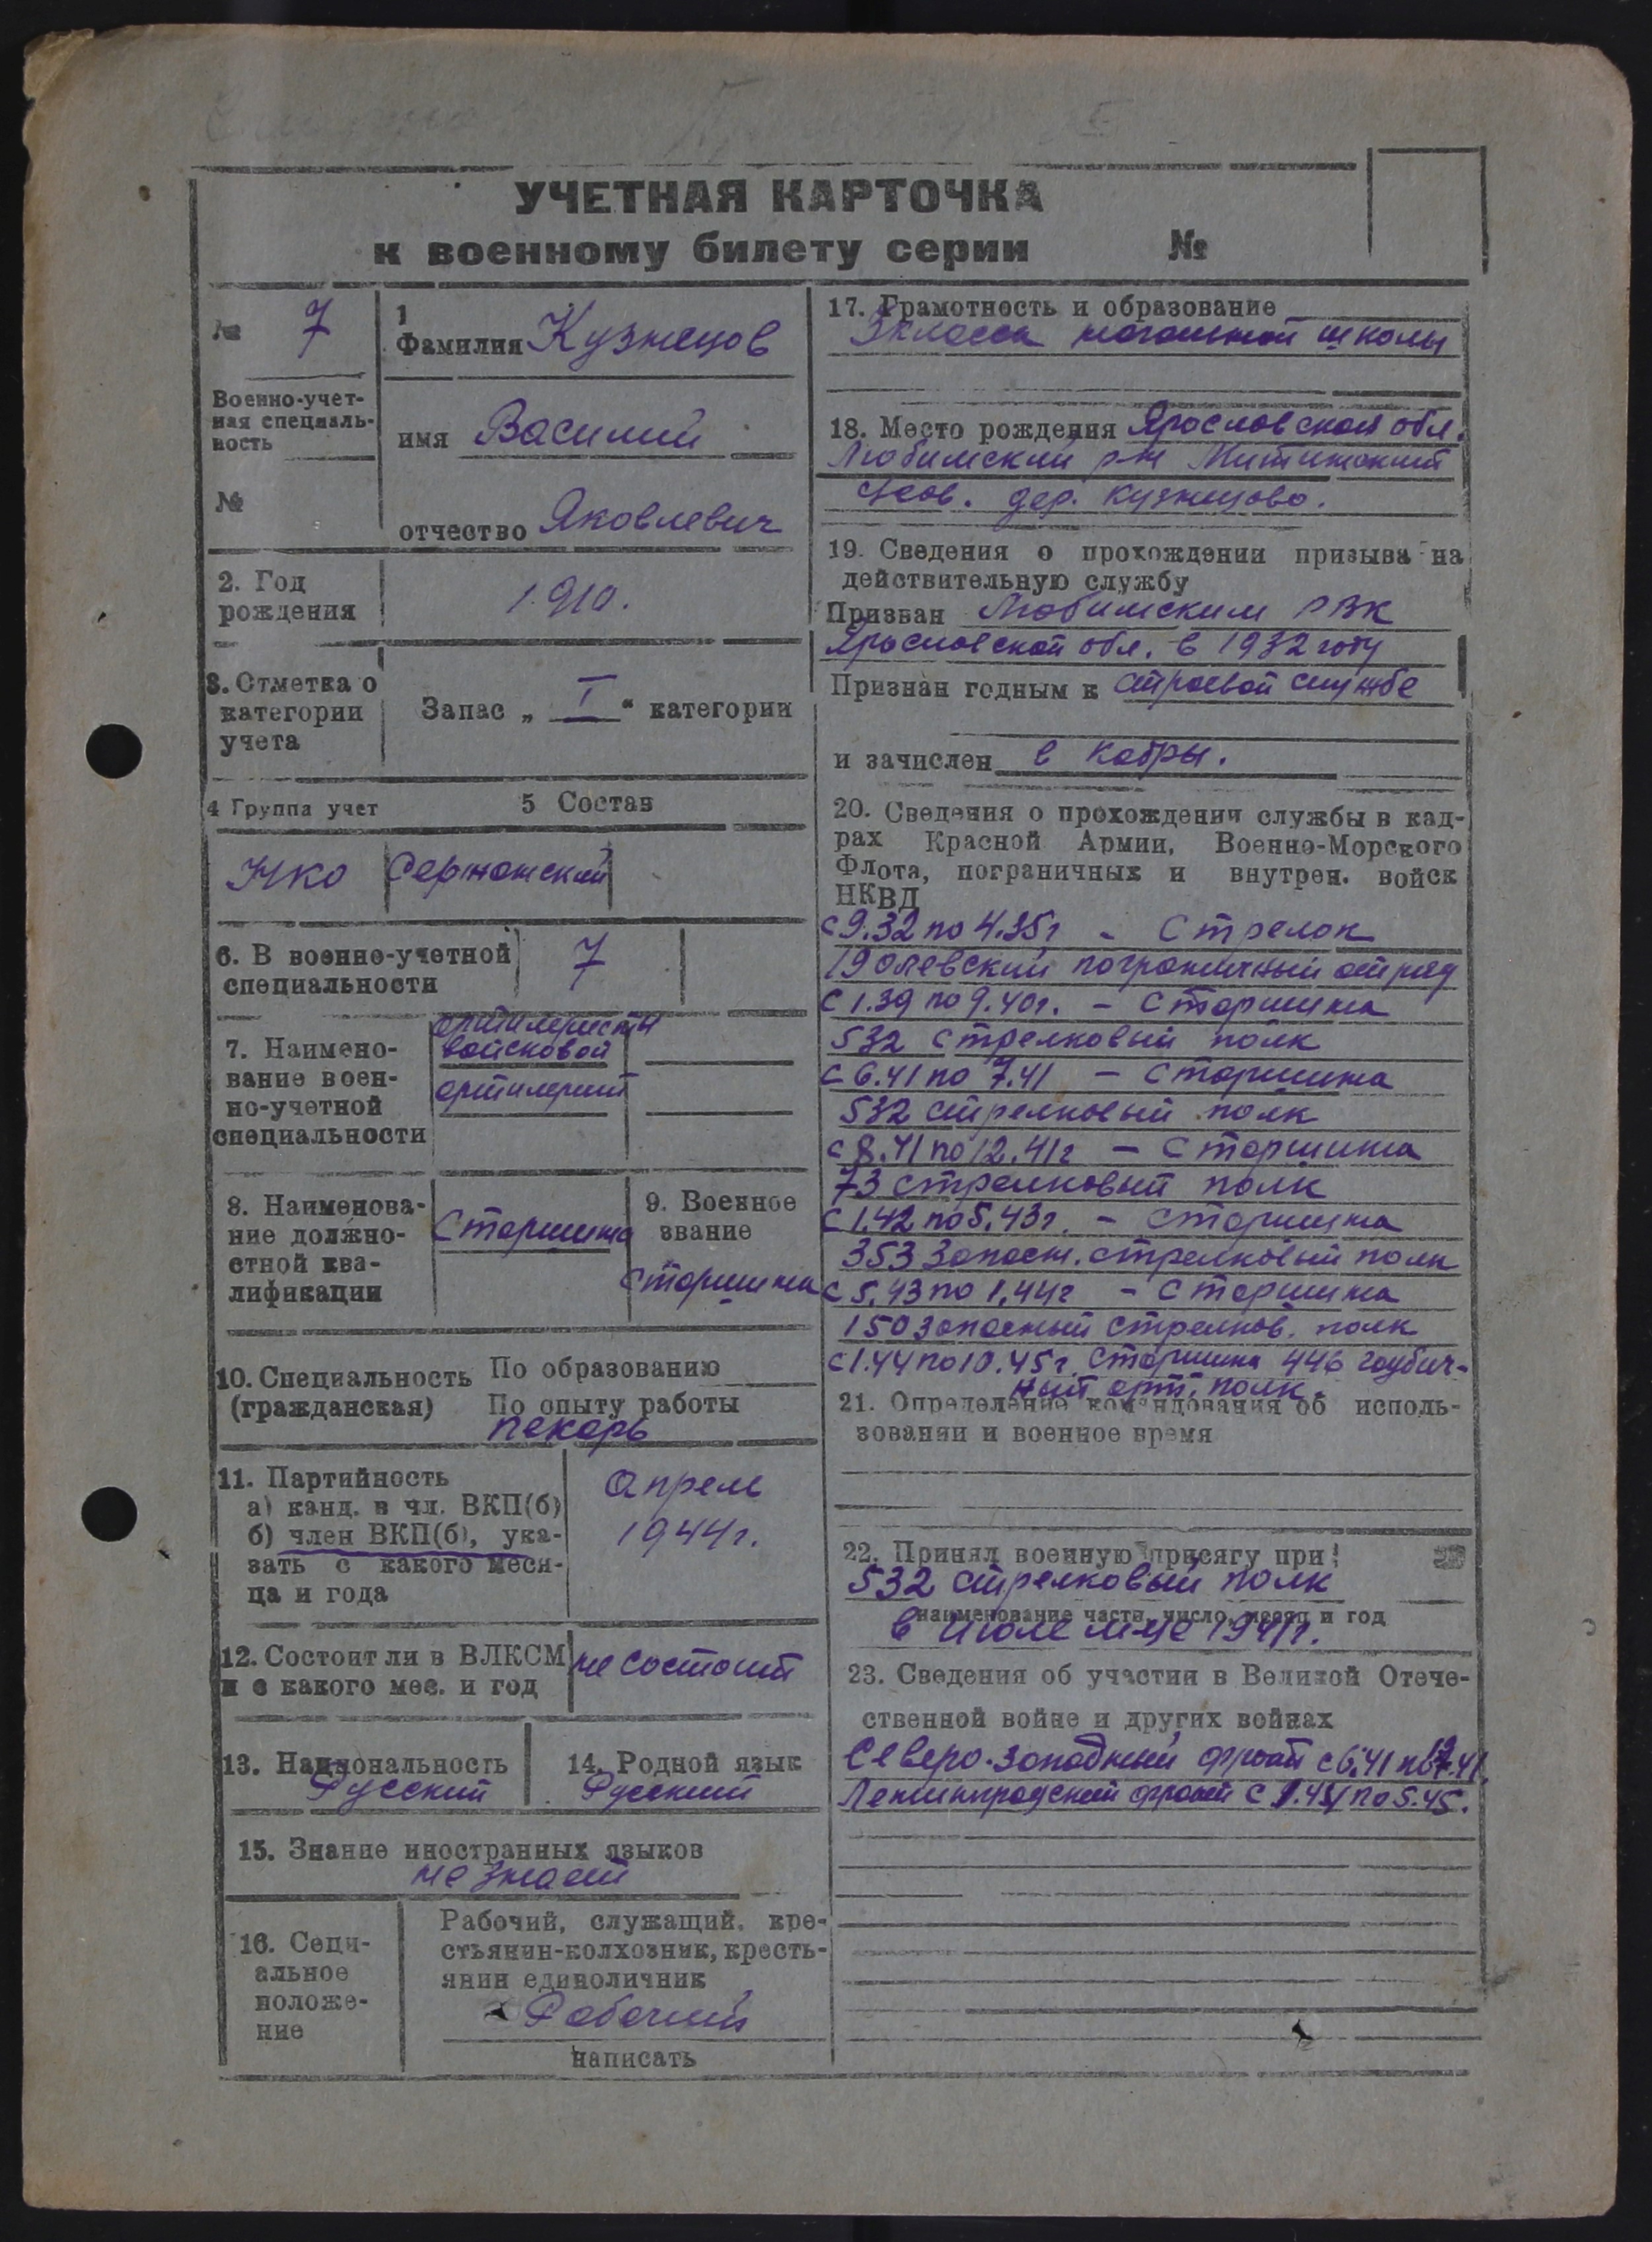 УЧЕТНАЯ КАРТОЧКА
к военному билету серии №
№ 7
Военно-учет-
ная специаль-
ность
№
1
Фамилия Кузнецов
имя Василий
отчество Яковлевич
2. Год
рождения
1910.
3. Отметка о
категории
учета
Запас „ I “ категории
4 Группа учет
5 Состав
НКО
Сержантский
6. В военно-учетной
специальности
7
7. Наимено-
вание воен-
но-учетной
специальности
артилеристы
войсковой
артилерий
8. Наименова-
ние должно-
стной ква-
лификации
Старшина
9. Военное
звание
старшина
10. Специальность
(гражданская)
По образованию
По опыту работы
пекарь
11. Партийность
а) канд. в чл. ВКП(б)
б) член ВКП(б), ука-
зать с какого меся-
ца и года
Апрель
1944г.
12. Состоит ли в ВЛКСМ
и с какого мес. и год
не состоит
13. Национальность
Русский
14. Родной язык
Русский
15. Знание иностранных языков
не знает
16. Соци-
альное
положе-
ние
Рабочий, служащий, кре-
стьянин-колхозник, кресть-
янин единоличник
Рабочий
написать
17. Грамотность и образование
3 класса начальной школы
18. Место рождения Ярославской обл.
Любимский р-н Митинский
с/сов. дер. Кузнецово.
19. Сведения о прохождении призыва на
действительную службу
Призван Любимским РВК
Ярославской обл. в 1932 году
Признан годным к строевой службе
и зачислен в кадры.
20. Сведения о прохождении службы в кад-
рах Красной Армии, Военно-Морского
Флота, пограничных и внутрен. войск
НКВД
с 9.32 по 4.35г - Стрелок
19 олевский пограничный отряд
с 1.39 по 9.40г. - Старшина
532 стрелковый полк
с 6.41 по 7.41 - Старшина
532 стрелковый полк
с 8.41 по 12.41г - Старшина
73 стрелковый полк
с 1.42 по 5.43г. - Старшина
353 запасн. стрелковый полк
с 5.43 по 1.44г - Старшина
150 запасный стрелков. полк
с 1.44 по 10.45г. Старшина 446 гаубич-
ный арт. полк.
21. Определение командования об исполь-
зовании и военное время
22. Принял военную присягу при:
532 стрелковый полк
наименование части, число, месяц и год
в июле м-це 1941г.
23. Сведения об участии в Великой Отече-
ственной войне и других войнах
Северо-Западный фронт с 6.41 по 12.41.
Ленинградский фронт с 1.44 по 5.45.